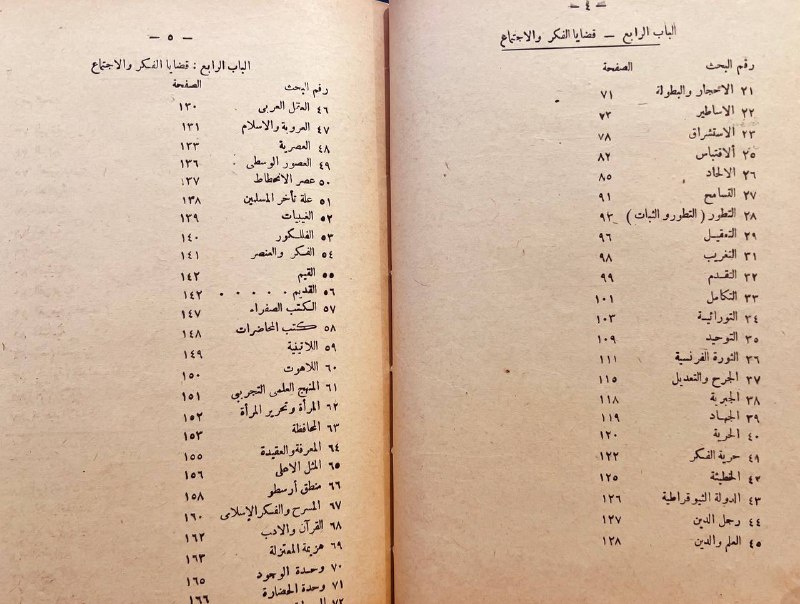 - ٤ -
الباب الرابع - قضايا الفكر والاجتماع
رقم البحث الصفحة
٢١ الانحجار والبطولة ٧١
٢٢ الاساطير ٧٣
٢٣ الاستشراق ٧٨
٢٥ ألاقتباس ٨٢
٢٦ الالحاد ٨٥
٢٧ التسامح ٩١
٢٨ التطور ( التطور و الثبات ) ٩٣
٢٩ ٩٦
٣١ التغريب ٩٨
٣٢ التقدم ٩٩
٣٣ التكامل ١٠١
٣٤ التوراثية ١٠٣
٣٥ التوحيد ١٠٩
٣٦ الثورة الفرنسية ١١١
٣٧ الجرح والتعديل ١١٥
٣٨ الجبرية ١١٨
٣٩ الجهاد ١١٩
٤٠ الحرية ١٢٠
٤٩ حرية الفكر ١٢٢
٤٢ الخطيئة ١٢٥
٤٣ الدولة الثيوقراطية ١٢٦
٤٤ رجل الدين ١٢٧
٤٥ العلم والدين ١٢٨
- ٥ -
الباب الرابع : قضايا الفكر والاجتماع
رقم البحث الصفحة
٤٦ العقل العربى ١٣٠
٤٧ العروبة والاسلام ١٣١
٤٨ العصرية ١٣٣
٤٩ العصور الوسطى ١٣٦
٥٠ عصر الانحطاط ١٣٧
٥١ علة تأخر المسلمين ١٣٨
٥٢ الغيبيات ١٣٩
٥٣ الفلكلور ١٤٠
٥٤ الفكر والعنصر ١٤١
٥٥ القيم ١٤٢
٥٦ القديم . . . . . ١٤٢
٥٧ الكتب الصفراء ١٤٧
٥٨ كتب المحاضرات ١٤٨
٥٩ اللاتينية ١٤٩
٦٠ اللاهوت ١٥٠
٦١ المنهج العلمى التجربى ١٥١
٦٢ المرأة وتحرير المرأة ١٥٢
٦٣ المحافظة ١٥٣
٦٤ المعرفة والعقيدة ١٥٥
٦٥ المثل الاعلى ١٥٦
٦٦ منطق أرسطو ١٥٨
٦٧ المسرح والفكر الإسلامى ١٦٠
٦٨ القرآن والادب ١٦٢
٦٩ هزيمة المعتزلة ١٦٣
٧٠ وحدة الوجود ١٦٥
٧١ وحدة الحضارة ١٦٦
٧٢